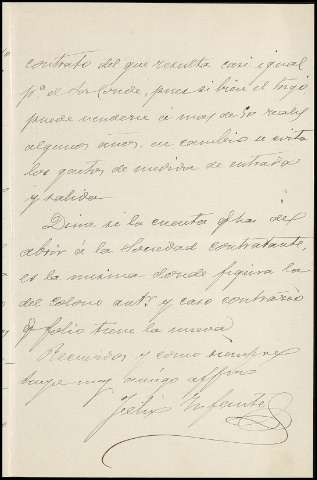 contrato del que resulta casi igual
pª el Sr Conde, pues si bien el trigo
puede venderse á mas de 50 reales
algunos años, en cambio se evita
los gastos de medicion de entrada
y salida.
Dime si la cuenta q. has de
abrir á la Sociedad contratante,
es la misma donde figura la
del colono antr. y caso contrario
q. folio tiene la nueva
Recuerdos y como siempre
tuyo muy amigo affmo
Félix Infante